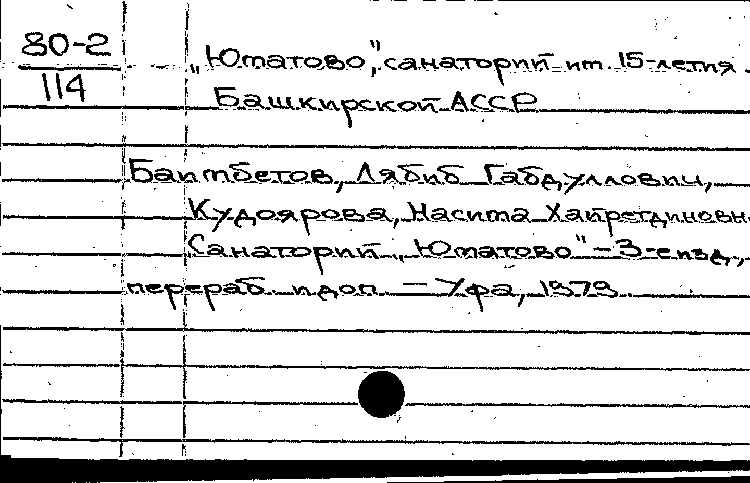 80-2
114
„Юматово", санаторий им. 15-летия
Башкирской АССР
Баимбетов, Лябиб Габдуллович,
Кудоярова, Насима Хайретдиновн
Санаторий „Юматово" - 3-е изд.,
перераб. и доп. - Уфа, 1979.